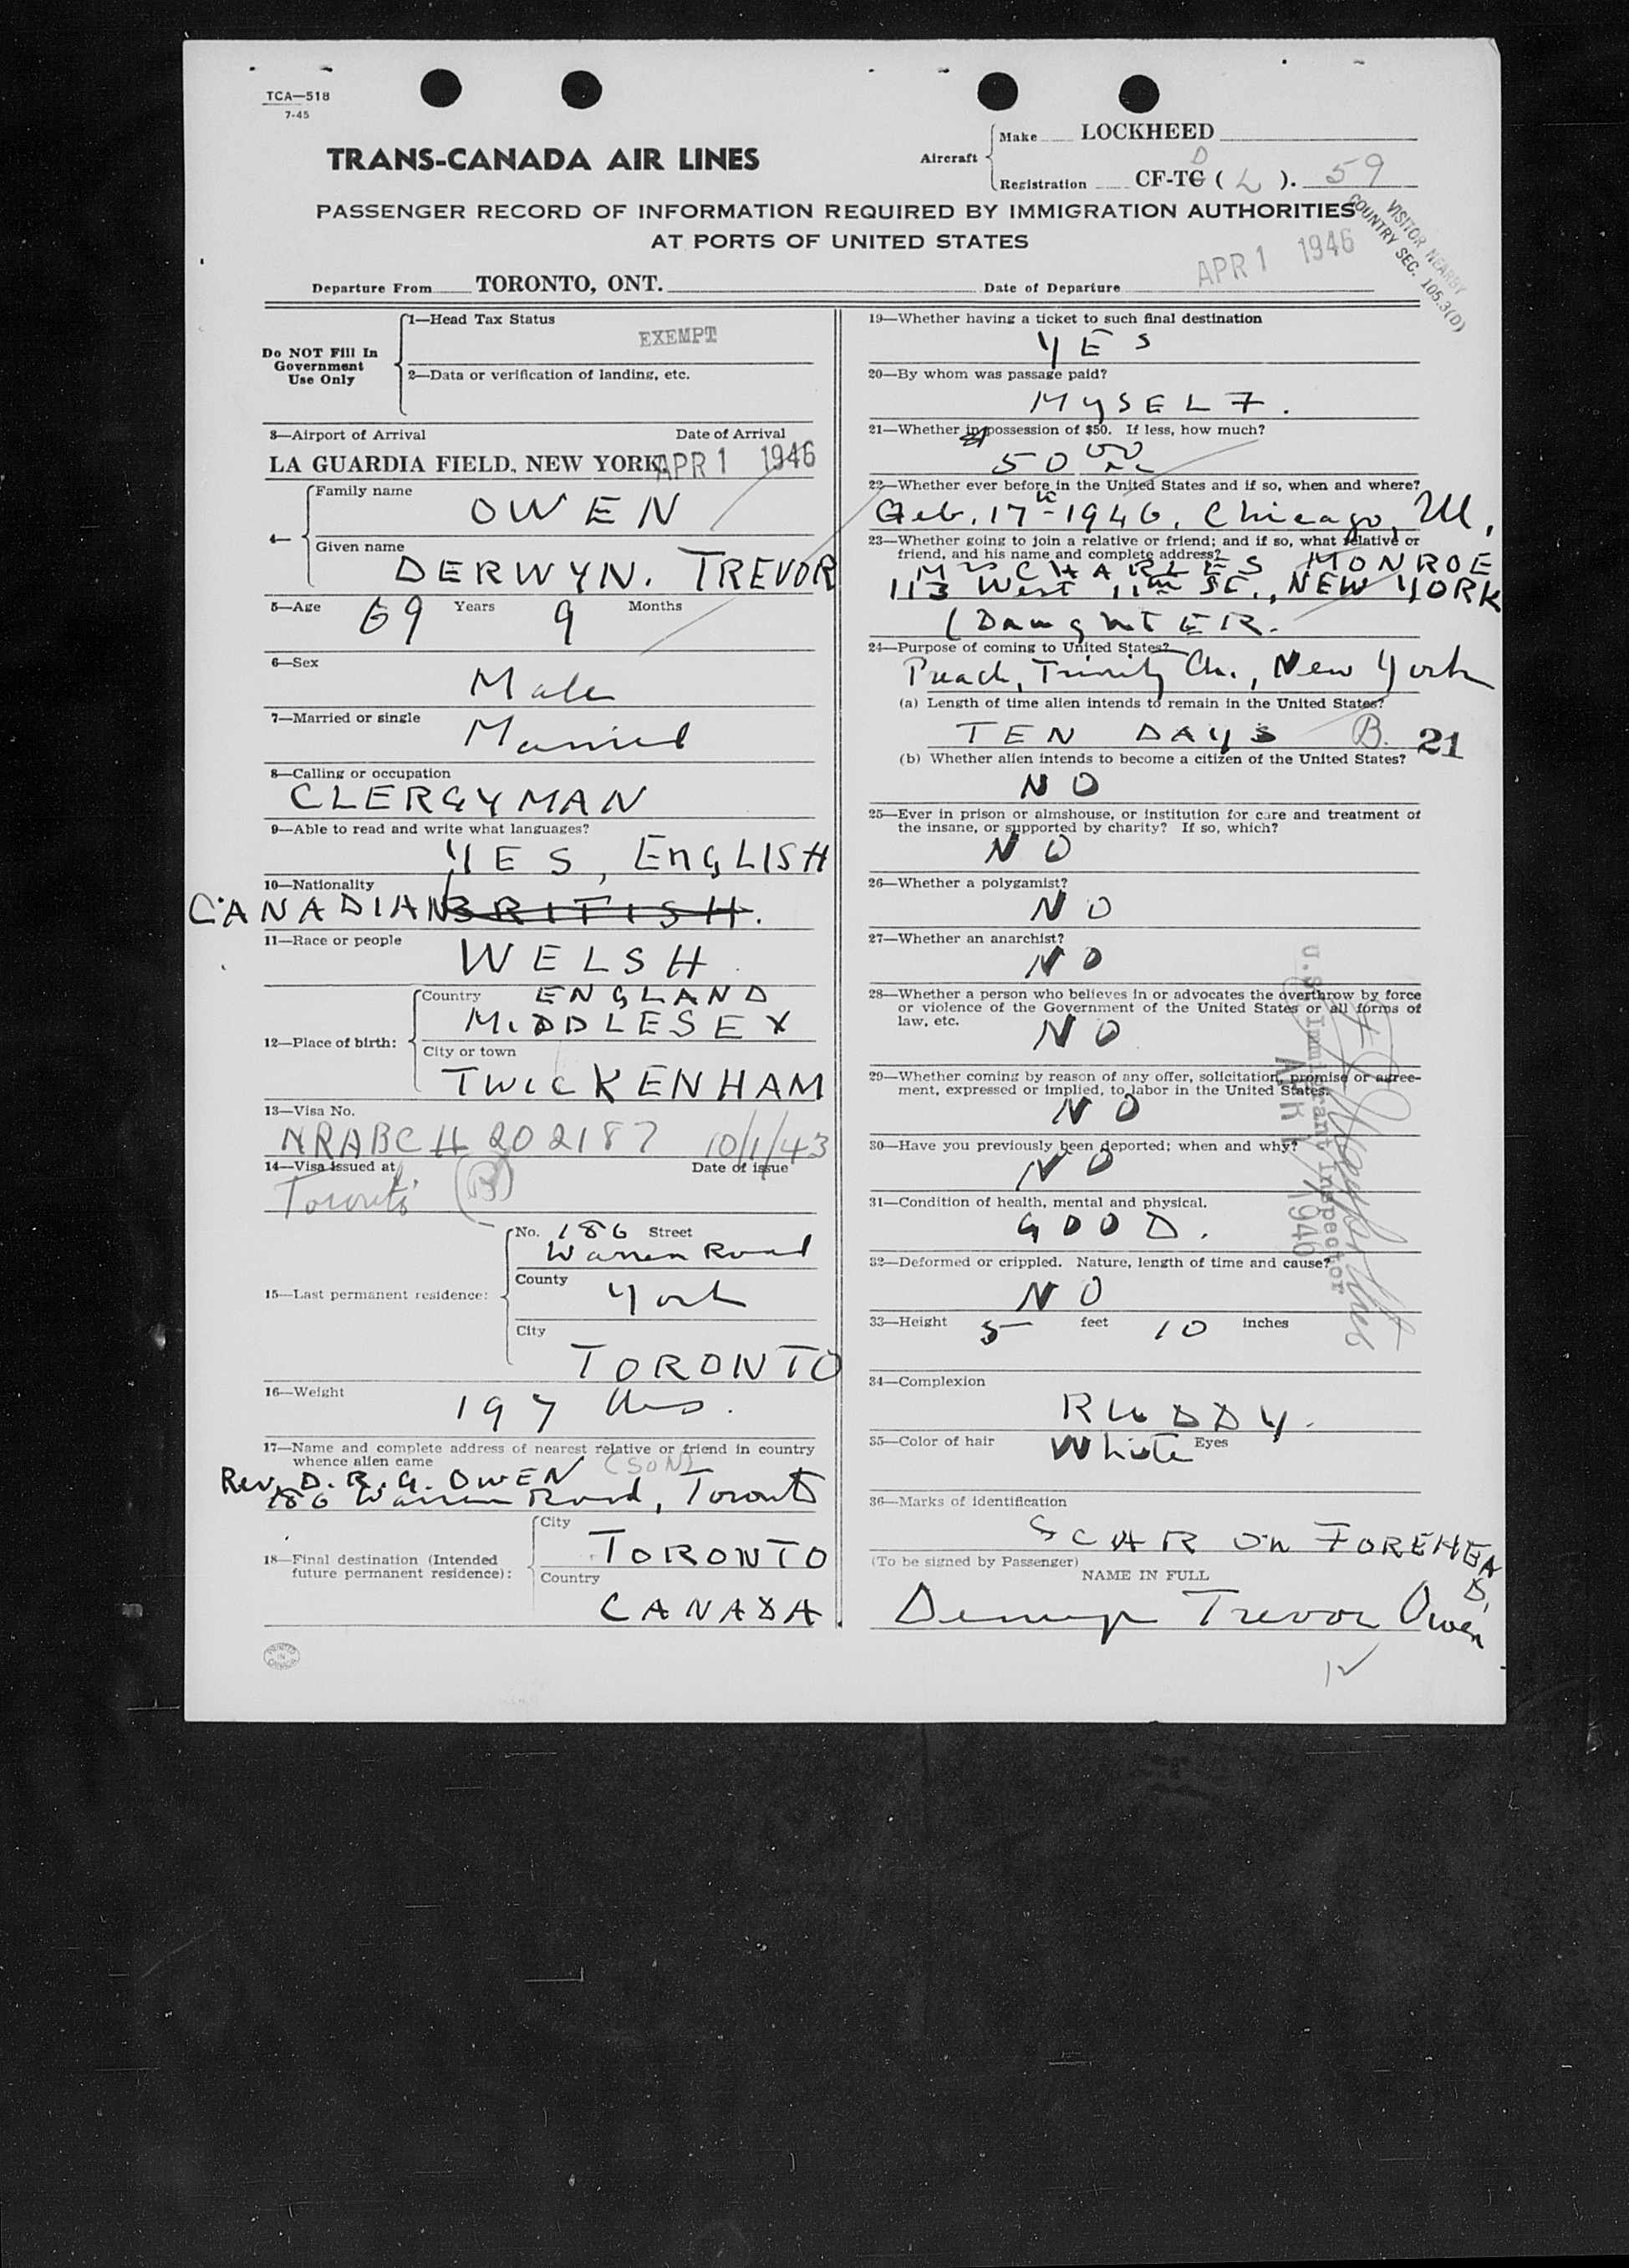 TCA—518
7-45
TRANS-CANADA AIR LINES
Aircraft
Make LOCKHEED
D
Registration CF-TG ( L ). 59
PASSENGER RECORD OF INFORMATION REQUIRED BY IMMIGRATION AUTHORITIES
AT PORTS OF UNITED STATES
VISITOR NEARBY
COUNTRY SEC. 105.3(D)
Departure From TORONTO, ONT.
Date of Departure APR 1 1946
Do NOT Fill In
Government
Use Only
1—Head Tax Status
EXEMPT
2—Data or verification of landing, etc.
3—Airport of Arrival Date of Arrival
LA GUARDIA FIELD, NEW YORK APR 1 1946
4—
Family name
OWEN
Given name
DERWYN. TREVOR
5—Age 69 Years 9 Months
6—Sex
Male
7—Married or single
Married
8—Calling or occupation
CLERGYMAN
9—Able to read and write what languages?
YES, ENGLISH
10—Nationality
CANADIAN BRITISH.
11—Race or people
WELSH
12—Place of birth:
Country ENGLAND
MIDDLESEX
City or town
TWICKENHAM
13—Visa No.
NRABC # 202187 10/1/43
14—Visa issued at Date of issue
Toronto (B)
15—Last permanent residence:
No. 186 Street
Warren Road
County
York
City
TORONTO
16—Weight
197 lbs.
17—Name and complete address of nearest relative or friend in country
whence alien came (SON)
Rev. D. R. G. OWEN
186 Warren Road, Toronto
18—Final destination (Intended
future permanent residence):
City
TORONTO
Country
CANADA.
PRINTED
IN
CANADA
19—Whether having a ticket to such final destination
YES
20—By whom was passage paid?
MYSELF.
21—Whether in possession of $50. If less, how much?
50 00
22—Whether ever before in the United States and if so, when and where?
Feb. 17th 1946, Chicago, Ill,
23—Whether going to join a relative or friend; and if so, what relative or
friend, and his name and complete address?
Mrs CHARLES MONROE
113 West 11th St., NEW YORK
(DaughtER.
24—Purpose of coming to United States?
Preach, Trinity Ch., New York
(a) Length of time alien intends to remain in the United States?
TEN DAYS B. 21
(b) Whether alien intends to become a citizen of the United States?
NO
25—Ever in prison or almshouse, or institution for care and treatment of
the insane, or supported by charity? If so, which?
NO
26—Whether a polygamist?
NO
27—Whether an anarchist?
NO
28—Whether a person who believes in or advocates the overthrow by force
or violence of the Government of the United States or all forms of
law, etc.
NO
29—Whether coming by reason of any offer, solicitation, promise or agree-
ment, expressed or implied, to labor in the United States.
NO
30—Have you previously been deported; when and why?
NO
U.S. Immigrant Inspector
APR 1 1946
31—Condition of health, mental and physical.
GOOD.
32—Deformed or crippled. Nature, length of time and cause?
NO
33—Height 5 feet 10 inches
34—Complexion
RUDDY.
35—Color of hair White Eyes
36—Marks of identification
SCAR On FOREHEAD.
(To be signed by Passenger)
NAME IN FULL
Derwyn Trevor Owen